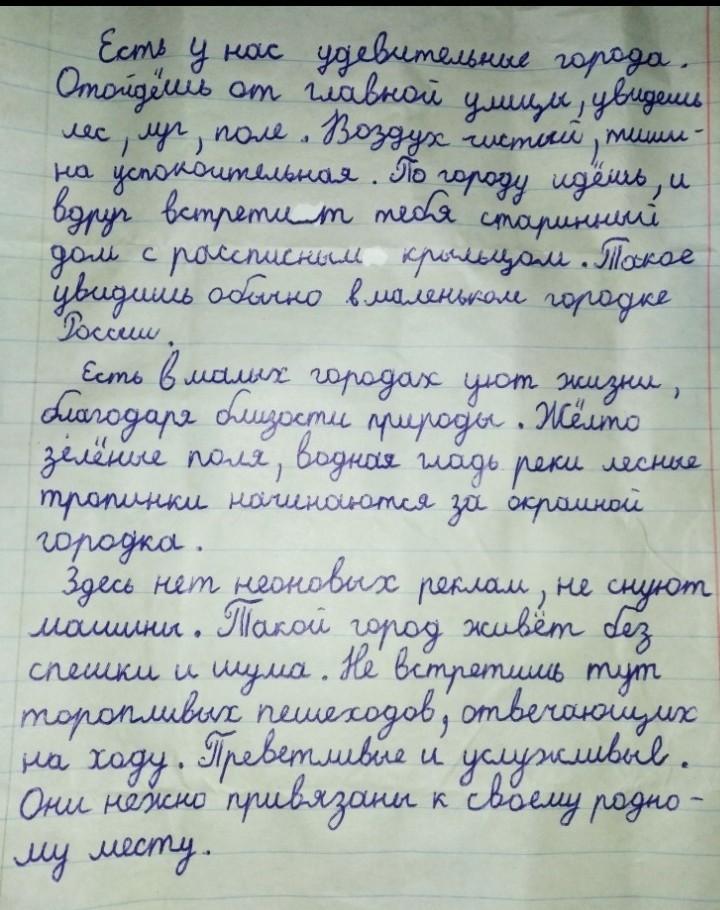 Есть у нас удевительные города.
Отойдёшь от главной улицы, увидешь
лес, луг, поле. Воздух чистый, тиши-
на успокоительная. По городу идёшь, и
вдруг встретит тебя старинный
дом с рассписным крыльцом. Такое
увидишь обычно в маленьком городке
России.
Есть в малых городах уют жизни,
благодаря близости природы. Жёлто
зелёные поля, водная гладь реки лесные
тропинки начинаются за окраиной
городка.
Здесь нет неоновых реклам, не снуют
машины. Такой город живёт без
спешки и шума. Не встретишь тут
торопливых пешеходов, отвечающих
на ходу. Преветливые и услужливые.
Они нежно привязаны к своему родно-
му месту.